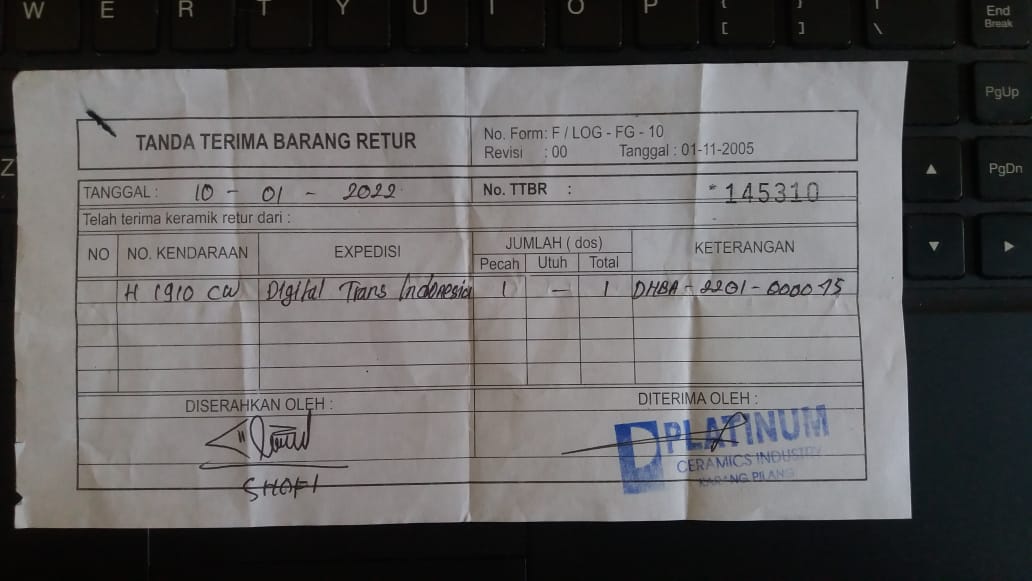 W E R T Y U I O P { [ } ] | \ End Break
PgUp
Z
PgDn
TANDA TERIMA BARANG RETUR
No. Form: F / LOG - FG - 10
Revisi : 00 Tanggal : 01-11-2005
TANGGAL : 10 - 01 - 2022
No. TTBR : * 145310
Telah terima keramik retur dari :
NO NO. KENDARAAN EXPEDISI JUMLAH ( dos ) KETERANGAN
Pecah Utuh Total
H 1910 CW Digital Trans Indonesia 1 — 1 DHBA - 2201 - 000075
DISERAHKAN OLEH : DITERIMA OLEH :
PLATINUM
CERAMICS INDUSTRY
KARANG PILANG
SHOFI